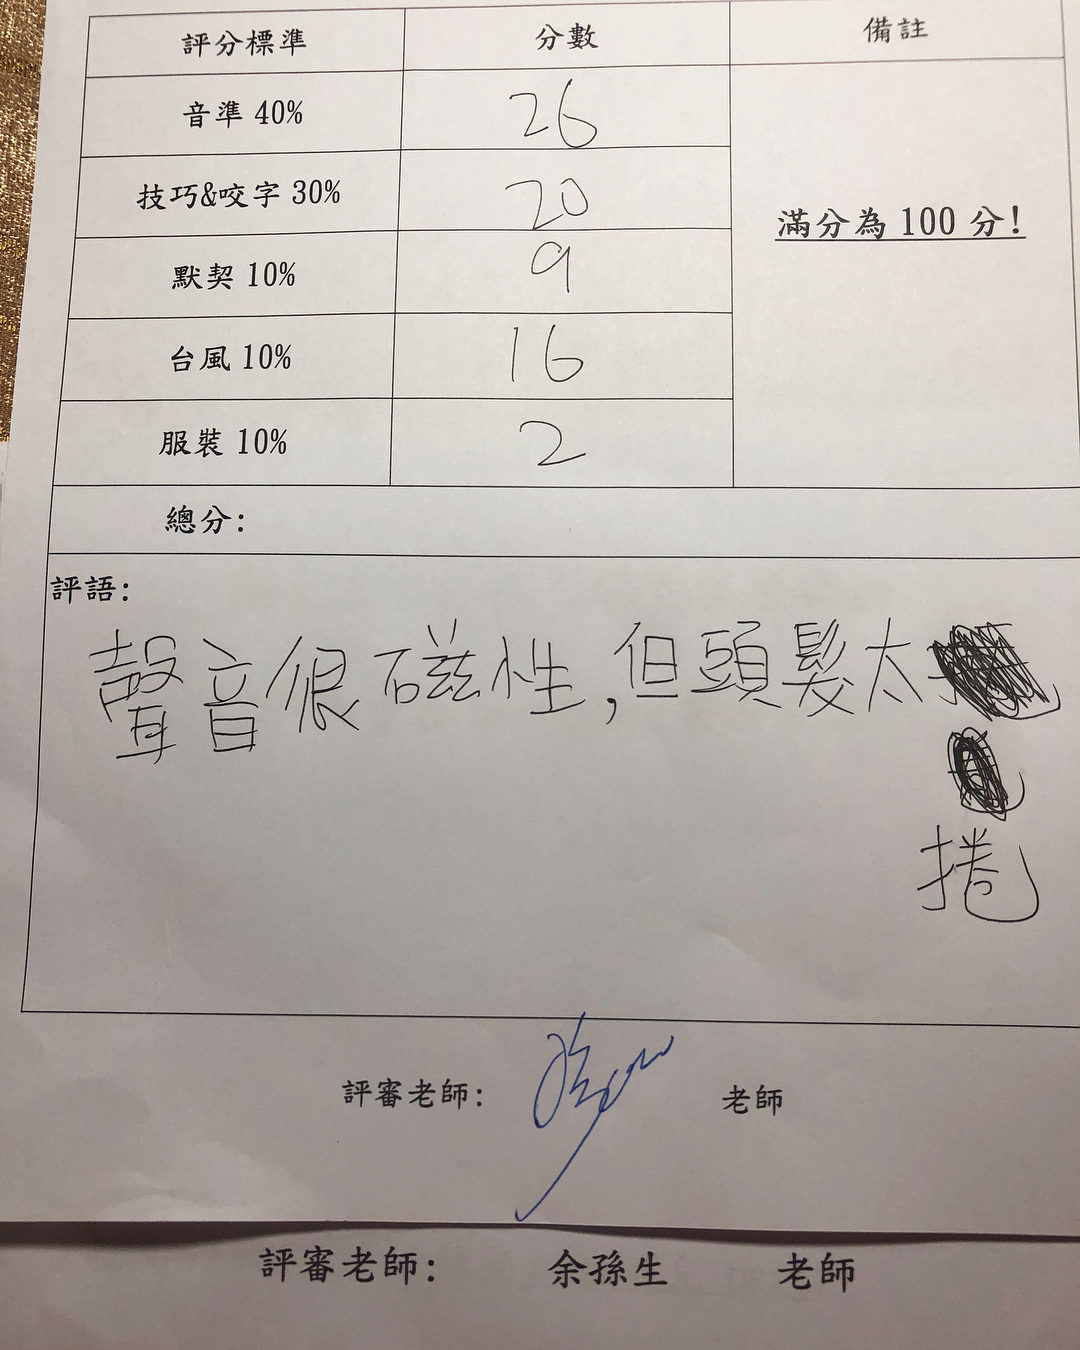 評分標準 分數 備註
音準 40% 26
技巧&咬字 30% 20
滿分為 100 分!
默契 10% 9
台風 10% 16
服裝 10% 2
總分:
評語:
聲音很磁性,但頭髮太
捲
評審老師: 老師
評審老師: 余孫生 老師